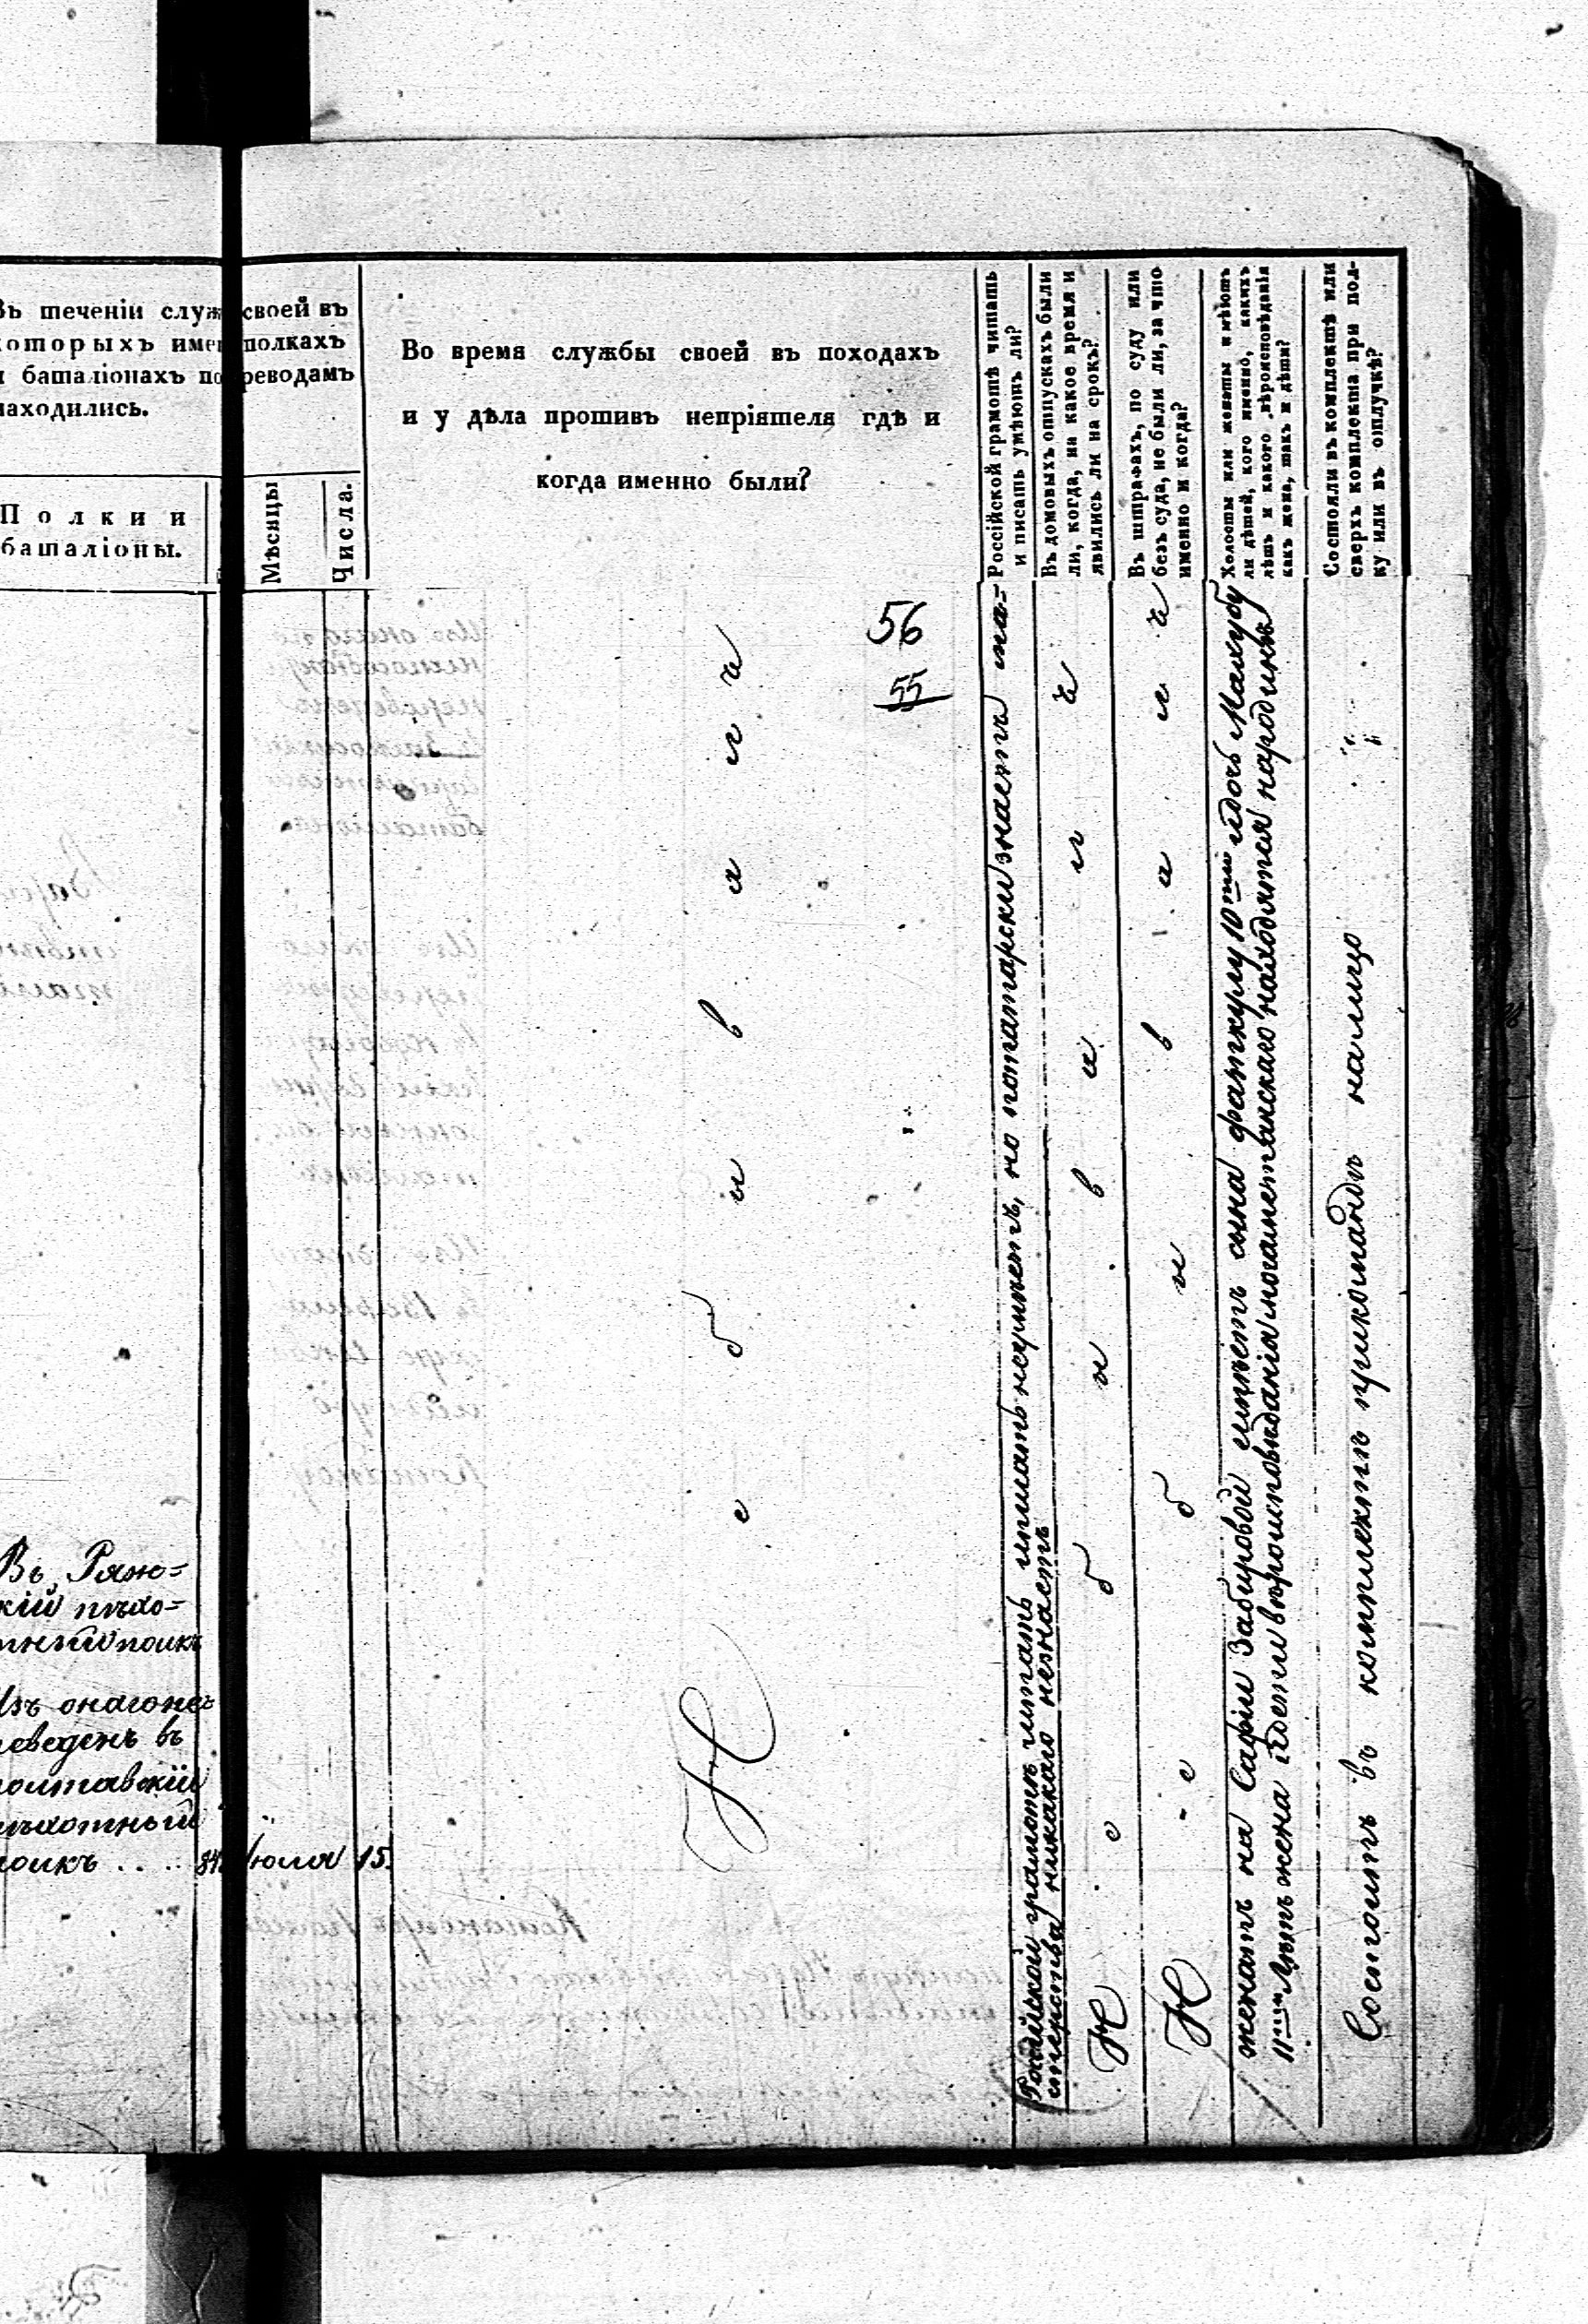 Въ теченіи служ своей въ
которыхъ имен полкахъ
и баталіонахъ по реводамъ
находились.
Полки и
баталіоны.
Мѣсяцы
Числа.
Во время службы своей въ походахъ
и у дѣла противъ непріятеля гдѣ и
когда именно были?
Россійской грамотѣ читать
и писать умѣютъ ли?
Въ домовыхъ отпускахъ были
ли, когда, на какое время и
явились ли на срокъ?
Въ штрафахъ, по суду или
безъ суда, не были ли, за что
именно и когда?
Холосты или женаты и имѣютъ
ли дѣтей, кого именно, какихъ
лѣтъ и какого вѣроисповѣданія
какъ жена, такъ и дѣти?
Состоли въ комплектѣ или
сверхъ комплекта при пол-
ку или въ отлучкѣ?
56
55
Въ Ряж=
кій пѣхо=
тный полкъ
Изъ онаго пе
реведенъ въ
полтавскій
пѣхотный
полкъ . . . . 84 Іюля 15.
Не бывалъ
Россійской грамотѣ читать и писать не умѣетъ, но потатарски знаетъ ма=
стерства никакаго незнаетъ
Не бывалъ
Не бывалъ
женатъ на Сафіи Забировой имѣетъ сына
лѣтъ жена и дѣти вѣроисповѣданія могаметанскаго находятся народинѣ
Состоитъ въ комплектѣ прикомандѣ налицо